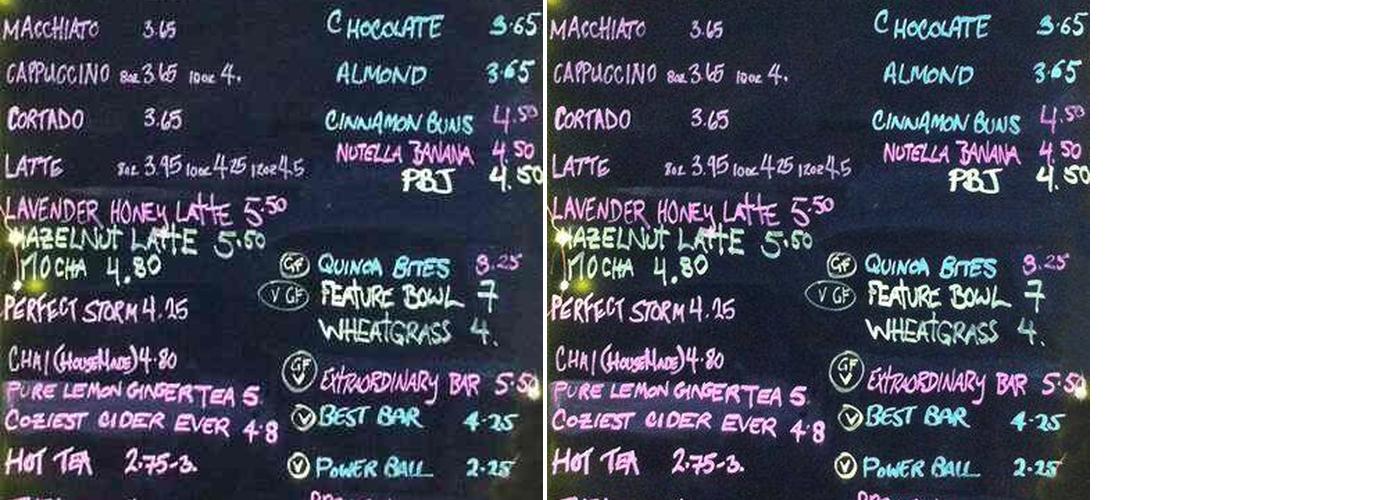 MACCHIATO 3.65
CAPPUCCINO 8oz 3.65 10oz 4.
CORTADO 3.65
LATTE 8oz 3.95 10oz 4.25 12oz 4.5
LAVENDER HONEY LATTE 5.50
HAZELNUT LATTE 5.50
MOCHA 4.80
PERFECT STORM 4.25
CHAI (HOUSEMADE) 4.80
PURE LEMON GINGER TEA 5.
COZIEST CIDER EVER 4.8
HOT TEA 2.75-3.
CHOCOLATE 3.65
ALMOND 3.65
CINNAMON BUNS 4.50
NUTELLA BANANA 4.50
PBJ 4.50
GF QUINOA BITES 3.25
V GF FEATURE BOWL 7
WHEATGRASS 4.
GF V EXTRAORDINARY BAR 5.50
V BEST BAR 4.25
V POWER BALL 2.25
MACCHIATO 3.65
CAPPUCCINO 8oz 3.65 10oz 4.
CORTADO 3.65
LATTE 8oz 3.95 10oz 4.25 12oz 4.5
LAVENDER HONEY LATTE 5.50
HAZELNUT LATTE 5.50
MOCHA 4.80
PERFECT STORM 4.25
CHAI (HOUSEMADE) 4.80
PURE LEMON GINGER TEA 5.
COZIEST CIDER EVER 4.8
HOT TEA 2.75-3.
CHOCOLATE 3.65
ALMOND 3.65
CINNAMON BUNS 4.50
NUTELLA BANANA 4.50
PBJ 4.50
GF QUINOA BITES 3.25
V GF FEATURE BOWL 7
WHEATGRASS 4.
GF V EXTRAORDINARY BAR 5.50
V BEST BAR 4.25
V POWER BALL 2.25